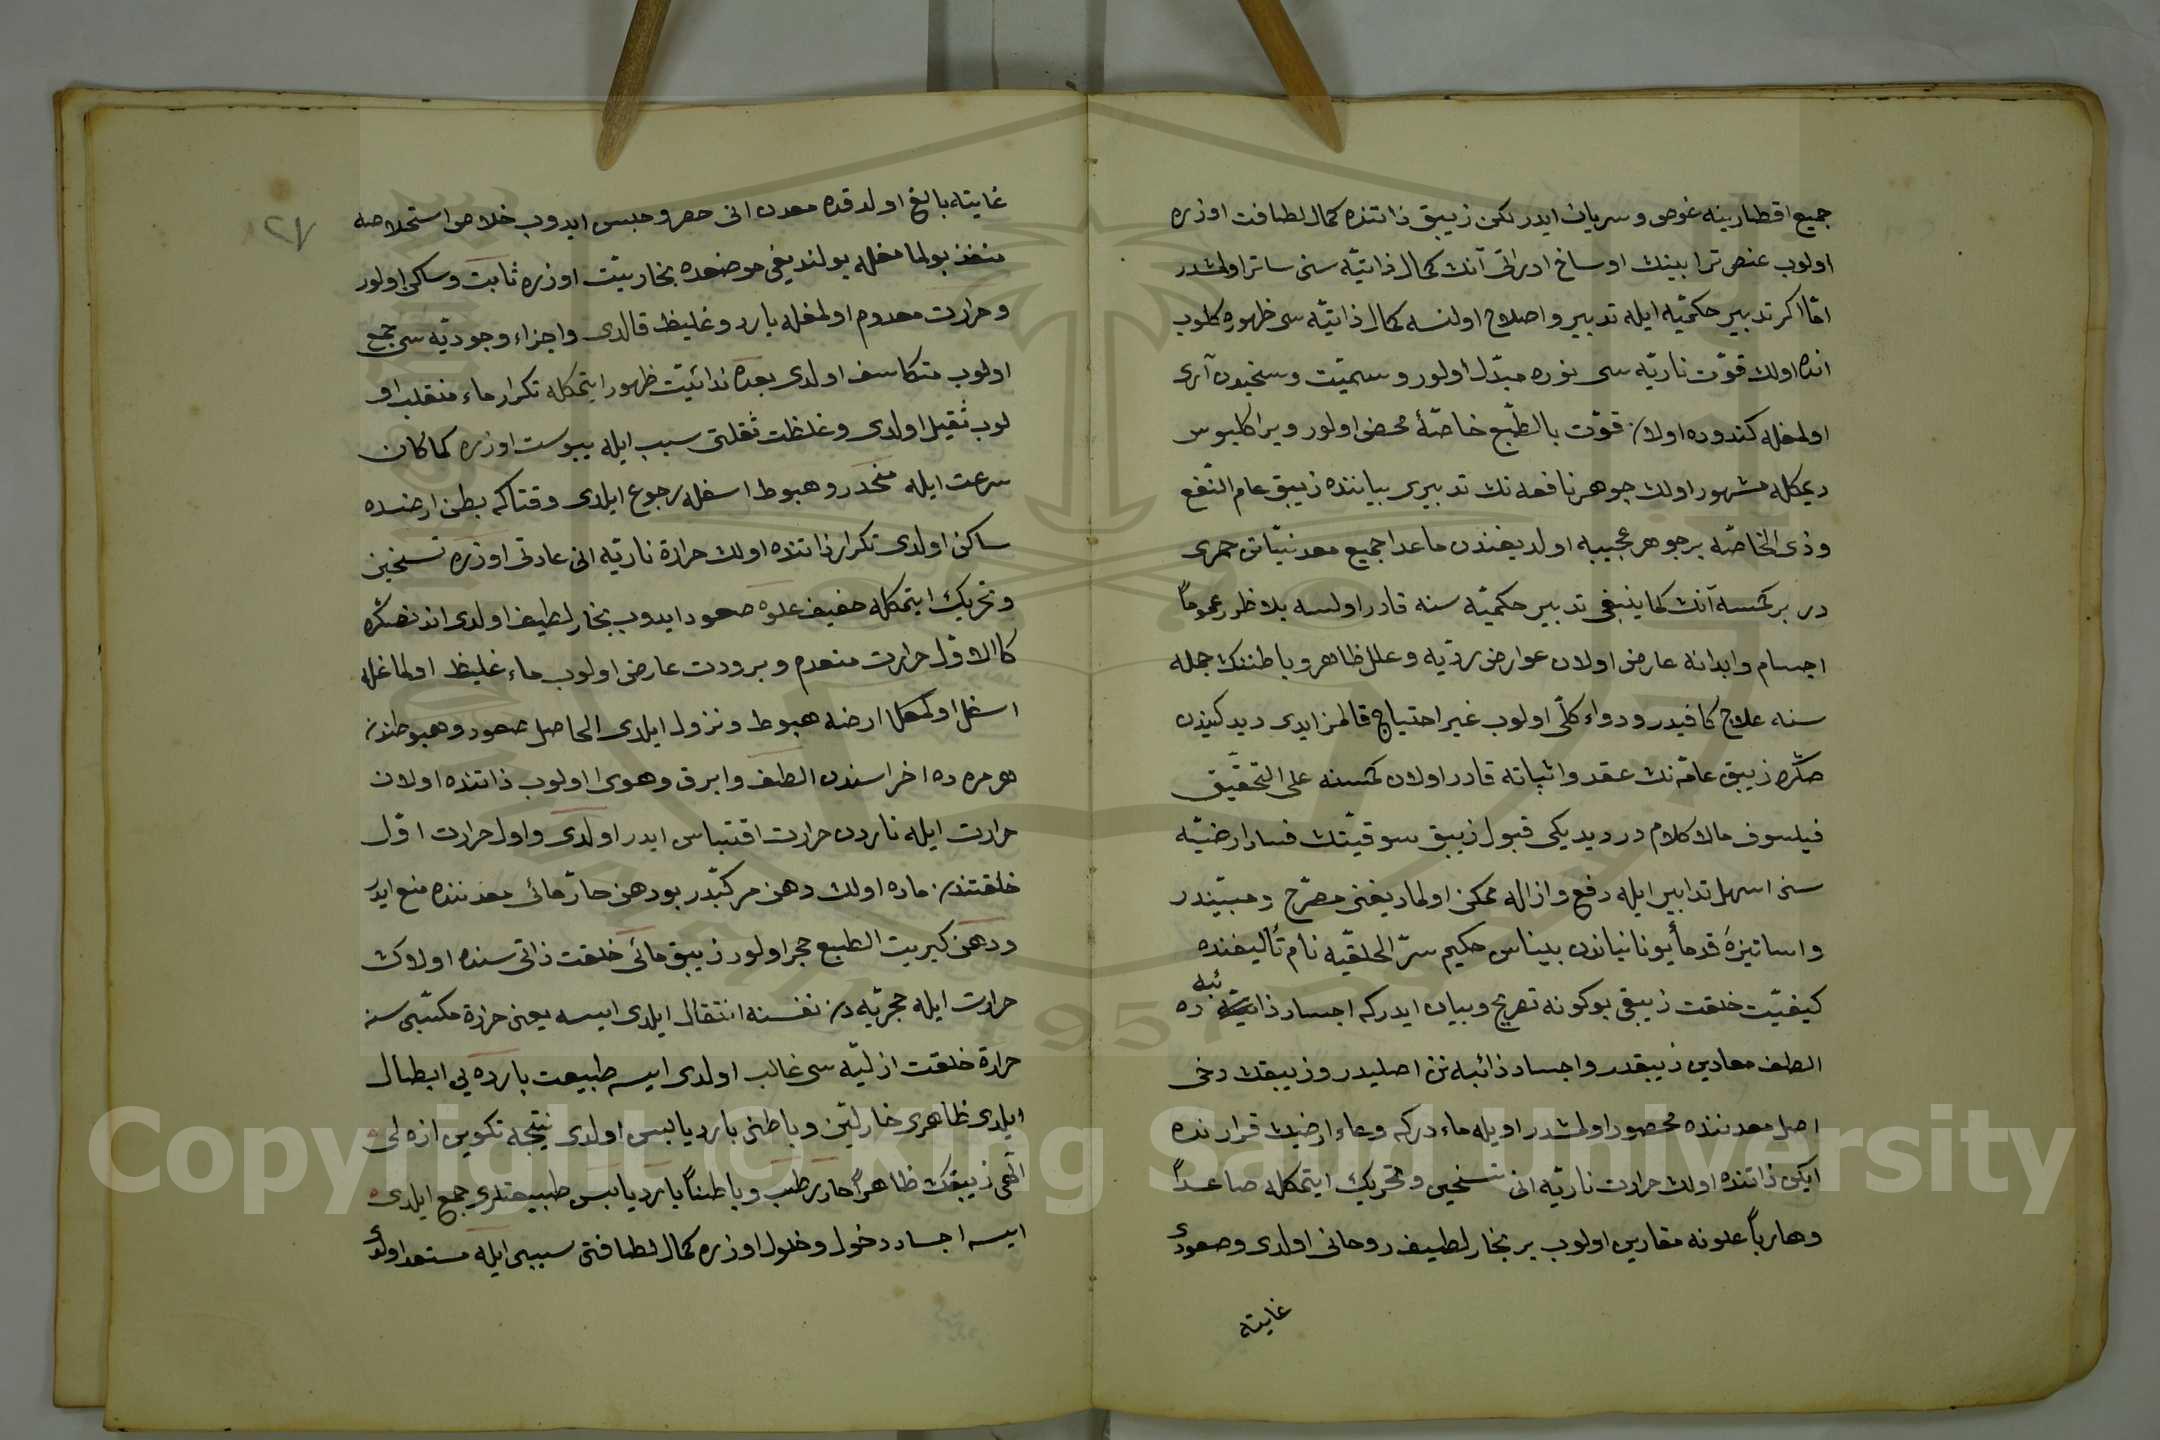 جميع اقطارينه غوص و سريان ايدر لكن زيبق ذاتنده كمال لطافت اوزره
اولوب عنصر ترابينك اوساخ ادرانى آنك كمال ذاتيّه سنى ساتر اولمشدر
امّا اكر تدبير حكميّه ايله تدبير و اصلاح اولنسه كمال ذاتيّه سى ظهوره كلوب
انده اولان قوّت ناريّه سى نوره مبدّل اولور و سميّت و سنخيدن آرى
اولمغله كندوده اولان قوّت بالطّبع خاصّهٔ محضى اولور و يرا كليوس
ديمكله مشهور اولان جوهر نافعه نك تدبيرى بياننده زيبق عام النّفع
و ذى الخاصّه بر جوهر عجيبه اولديغندن ماعدا جميع معدنيّاتن حمرى
در بر كمسه آنك كما ينبغى تدبير حكميّه سنه قادر اولسه بلا ظرر عموماً
اجسام و ابدانه عارض اولان عوارض رديّه و علل ظاهر و باطننك جمله
سنه علاج كافيدر و دواء كلّى اولوب غير احتياج قالمز ايدى ديدكيندن
صكّره زيبق عامّه نك عقد و اثباته قادر اولان كمسنه على التحقيق
فيلسوف مالا كلام در ديديكى قبول زيبق سوقيّتك فساد ارضيّه
سنى اسهل تدابير ايله دفع و ازاله ممكن اولماديغنى مصرّح و مبيّندر
و اساتيزهٔ قدمأ يونانياندن بليناس حكيم سرّ الخلقيّه نام تأليفنده
كيفيّت خلقت زيبقى بوكونه تصريح و بيان ايدركه اجساد ذائبه ده
الطف معادين زيبقدر و اجساد ذائبه نن اصليدر و زيبقك دخى
اصل معدننده محصور اولمشدر اويله ماء دركه وعاء ارضيك قرارنده
ايكن ذاتنده اولان حرارت ناريّه انى تسخين و تحريك ايتمكله صاعداً
و هارباً علونه مقارين اولوب بر بخار لطيف روحانى اولدى و صعودى
غايته
٢٧
غايتله بالغ اولدقده معدن انى حصر و حبس ايدوب خلاص استخلاصه
منفذ بولمامغله بولنديغى موضعده بخاريّت اوزره ثابت و ساكن اولور
و حرارت معدوم اولمغله بارد و غليظ قالدى و اجزاء وجوديّه سى جمع
اولوب متكاسف اولدى بعده ندائيّت ظهور ايتمكله تكرار ماء منقلب او
لوب ثقيل اولدى و غلظت ثقلتى سبب ايله يبوست اوزره كما كان
سرعت ايله منحدر و هبوط اسفله رجوع ايلدى وقتاكه بطن ارضده
ساكن اولدى تكرار ذاتنده اولان حرارة ناريّه انى عادتى اوزره تسخين
و تحريك ايتمكله خفيف علوه صعود ايدوب بخار لطيف اولدى اندنصكّره
كالاوّل حرارت منعدم و برودت عارض اولوب ماء غليظ اولماغله
اسفل اولمغله ارضه هبوط و نزول ايلدى الحاصل صعود و هبوطندن
هر مره ده اخراسندن الطف و ابرق و هوى اولوب ذاتنده اولان
حرارت ايله ناردن حرارت اقتباس ايدر اولدى و اول حرارت اوّل
خلقتندن ماده اولان دهن مركبّدر بو دهن حارّ مائى معدننده منع ايدر
و دهن كبريت الطبع حجر اولور زيبق مائى خلقت ذاتى سنده اولان
حرارت ايله حجريّه دن نفسنه انتقال ايلدى ايسه يعنى حرارة مكتسبى سنه
حرارة خلقت ازليّه سى غالب اولدى ايسه طبيعت بارده يى ابطال
ايلدى ظاهرى حار ليّن و باطنى بارد يابس اولدى نتيجه تكوين ازه لى
الٓهى زيبقك ظاهراً حار رطب و باطناً بارد يابس طبيعتلرى جمع ايلدى
ايسه اجساد دخول و خلول اوزره كمال لطافتى سببى ايله مستعد اولدى